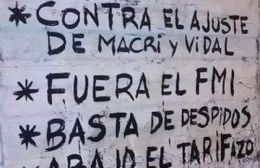 * CONTRA EL AJUSTE
DE MACRI y VIDAL
* FUERA EL FMI
* BASTA DE DESPIDOS
* ABAJO EL TARIFAZO